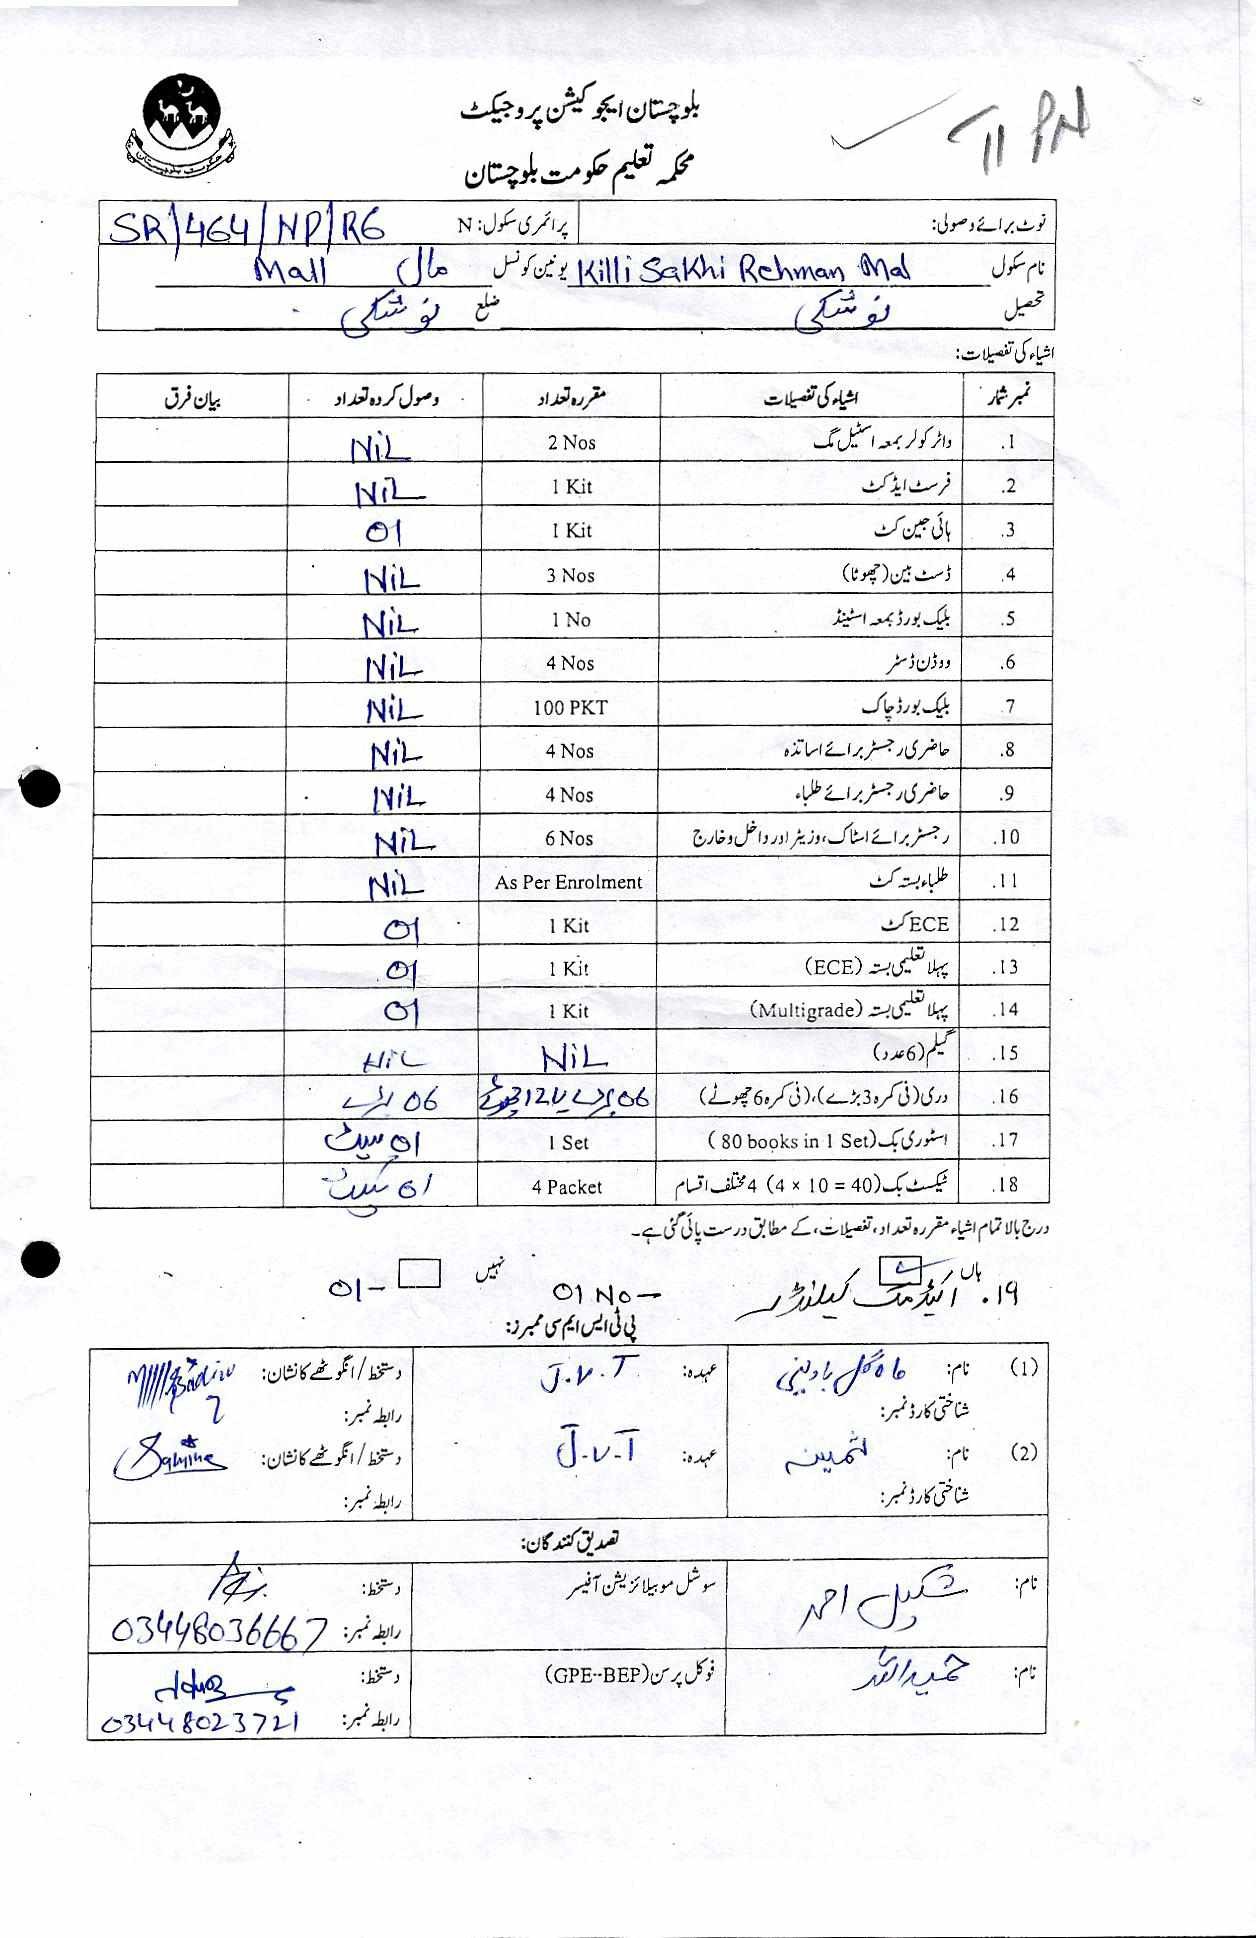 بلوچستان ایجوکیشن پروجیکٹ
محکمہ تعلیم حکومت بلوچستان
حکومت بلوچستان
نوٹ برائے وصولی: پرائمری سکول: N SR/464/NP/R6
نام سکول Killi Sakhi Rehman Mal یونین کونسل مال Mall
تحصیل نوشکی ضلع نوشکی
اشیاء کی تفصیلات:
نمبر شمار اشیاء کی تفصیلات مقررہ تعداد وصول کردہ تعداد بیان فرق
1. واٹر کولر بمعہ اسٹیل مگ 2 Nos NiL
2. فرسٹ ایڈ کٹ 1 Kit NiL
3. ہائی جین کٹ 1 Kit 01
4. ڈسٹ بین (چھوٹا) 3 Nos NiL
5. بلیک بورڈ بمعہ اسٹینڈ 1 No NiL
6. ووڈن ڈسٹر 4 Nos NiL
7. بلیک بورڈ چاک 100 PKT NiL
8. حاضری رجسٹر برائے اساتذہ 4 Nos NiL
9. حاضری رجسٹر برائے طلباء 4 Nos NiL
10. رجسٹر برائے اسٹاک، وزیٹر اور داخل و خارج 6 Nos NiL
11. طلباء بستہ کٹ As Per Enrolment NiL
12. ECE کٹ 1 Kit 01
13. پہلا تعلیمی بستہ (ECE) 1 Kit 01
14. پہلا تعلیمی بستہ (Multigrade) 1 Kit 01
15. گلیم (6 عدد) NiL NiL
16. دری (فی کمرہ 3 بڑے)، (فی کمرہ 6 چھوٹے) 06 بڑے یا 12 چھوٹے 06 بڑے
17. اسٹوری بک (80 books in 1 Set) 1 Set 01 سیٹ
18. ٹیکسٹ بک (4 × 10 = 40) 4 مختلف اقسام 4 Packet 01
درج بالا تمام اشیاء مقررہ تعداد، تفصیلات، کے مطابق درست پائی گئی ہے۔
ہاں نہیں
۱۹. اکیڈمک کیلنڈر 01 No — 01 —
پی ٹی ایس ایم سی ممبرز:
(1) نام: ماہ گل بادینی عہدہ: J.V.T دستخط / انگوٹھے کا نشان:
شناختی کارڈ نمبر: رابطہ نمبر:
(2) نام: ثمینہ عہدہ: J.V.T دستخط / انگوٹھے کا نشان: Samina
شناختی کارڈ نمبر: رابطہ نمبر:
تصدیق کنندگان:
نام: شکیل احمد سوشل موبیلائزیشن آفیسر دستخط:
رابطہ نمبر: 03448036667
نام: حمیداللہ فوکل پرسن (GPE-BEP) دستخط:
رابطہ نمبر: 03448023721